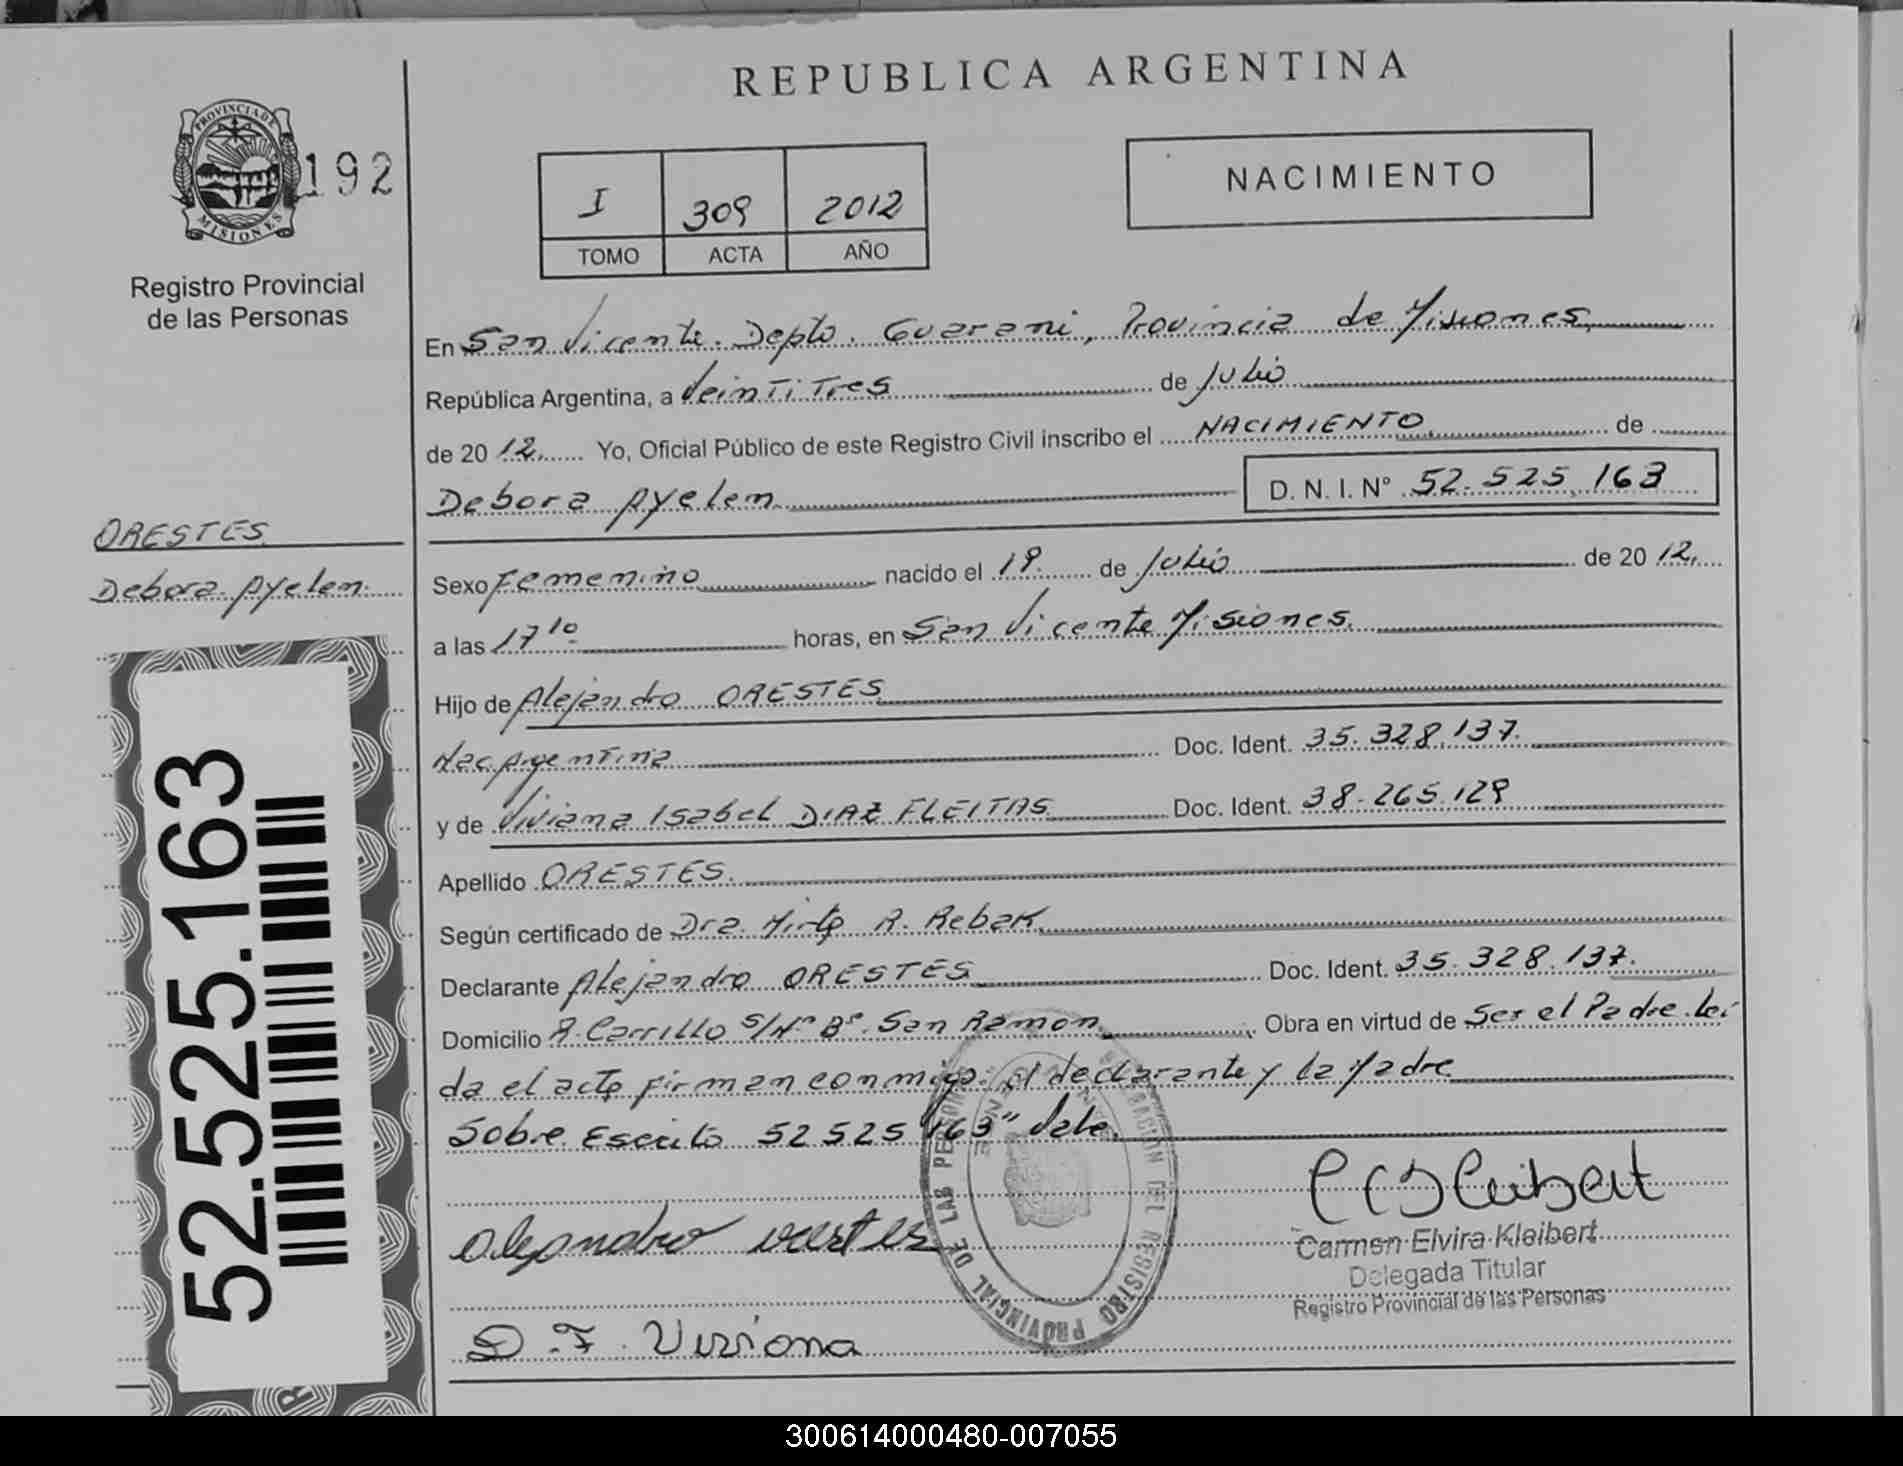 REPUBLICA ARGENTINA
PROVINCIA DE
MISIONES
192
Registro Provincial
de las Personas
I 309 2012
TOMO ACTA AÑO
NACIMIENTO
En San Vicente. Depto. Guarani, Provincia de Misiones,
República Argentina, a Veintitres de Julio
de 2012. Yo, Oficial Público de este Registro Civil inscribo el NACIMIENTO de
Debora Ayelem D. N. I. Nº 52.525.163
ORESTES
Debora Ayelem
Sexo Femenino nacido el 19 de Julio de 2012.
a las 17 10 horas, en San Vicente Misiones.
Hijo de Alejandro ORESTES
Nac. Argentina Doc. Ident. 35.328.137.
y de Viviana Isabel DIAZ FLEITAS Doc. Ident. 38.265.129
Apellido ORESTES.
Según certificado de Dra. Mirta R. Rebak
Declarante Alejandro ORESTES Doc. Ident. 35.328.137.
Domicilio R. Carrillo S/Nº Bº. San Ramon Obra en virtud de Ser el Padre. Lei
da el acta firman conmigo el declarante y la Madre
Sobre Escrito 52 525 "163" Vale.
52.525.163
Alejandro
Carmen Elvira Kleibert
Delegada Titular
Registro Provincial de las Personas
D. F. Viviana
REGISTRO PROVINCIAL DE LAS
300614000480-007055